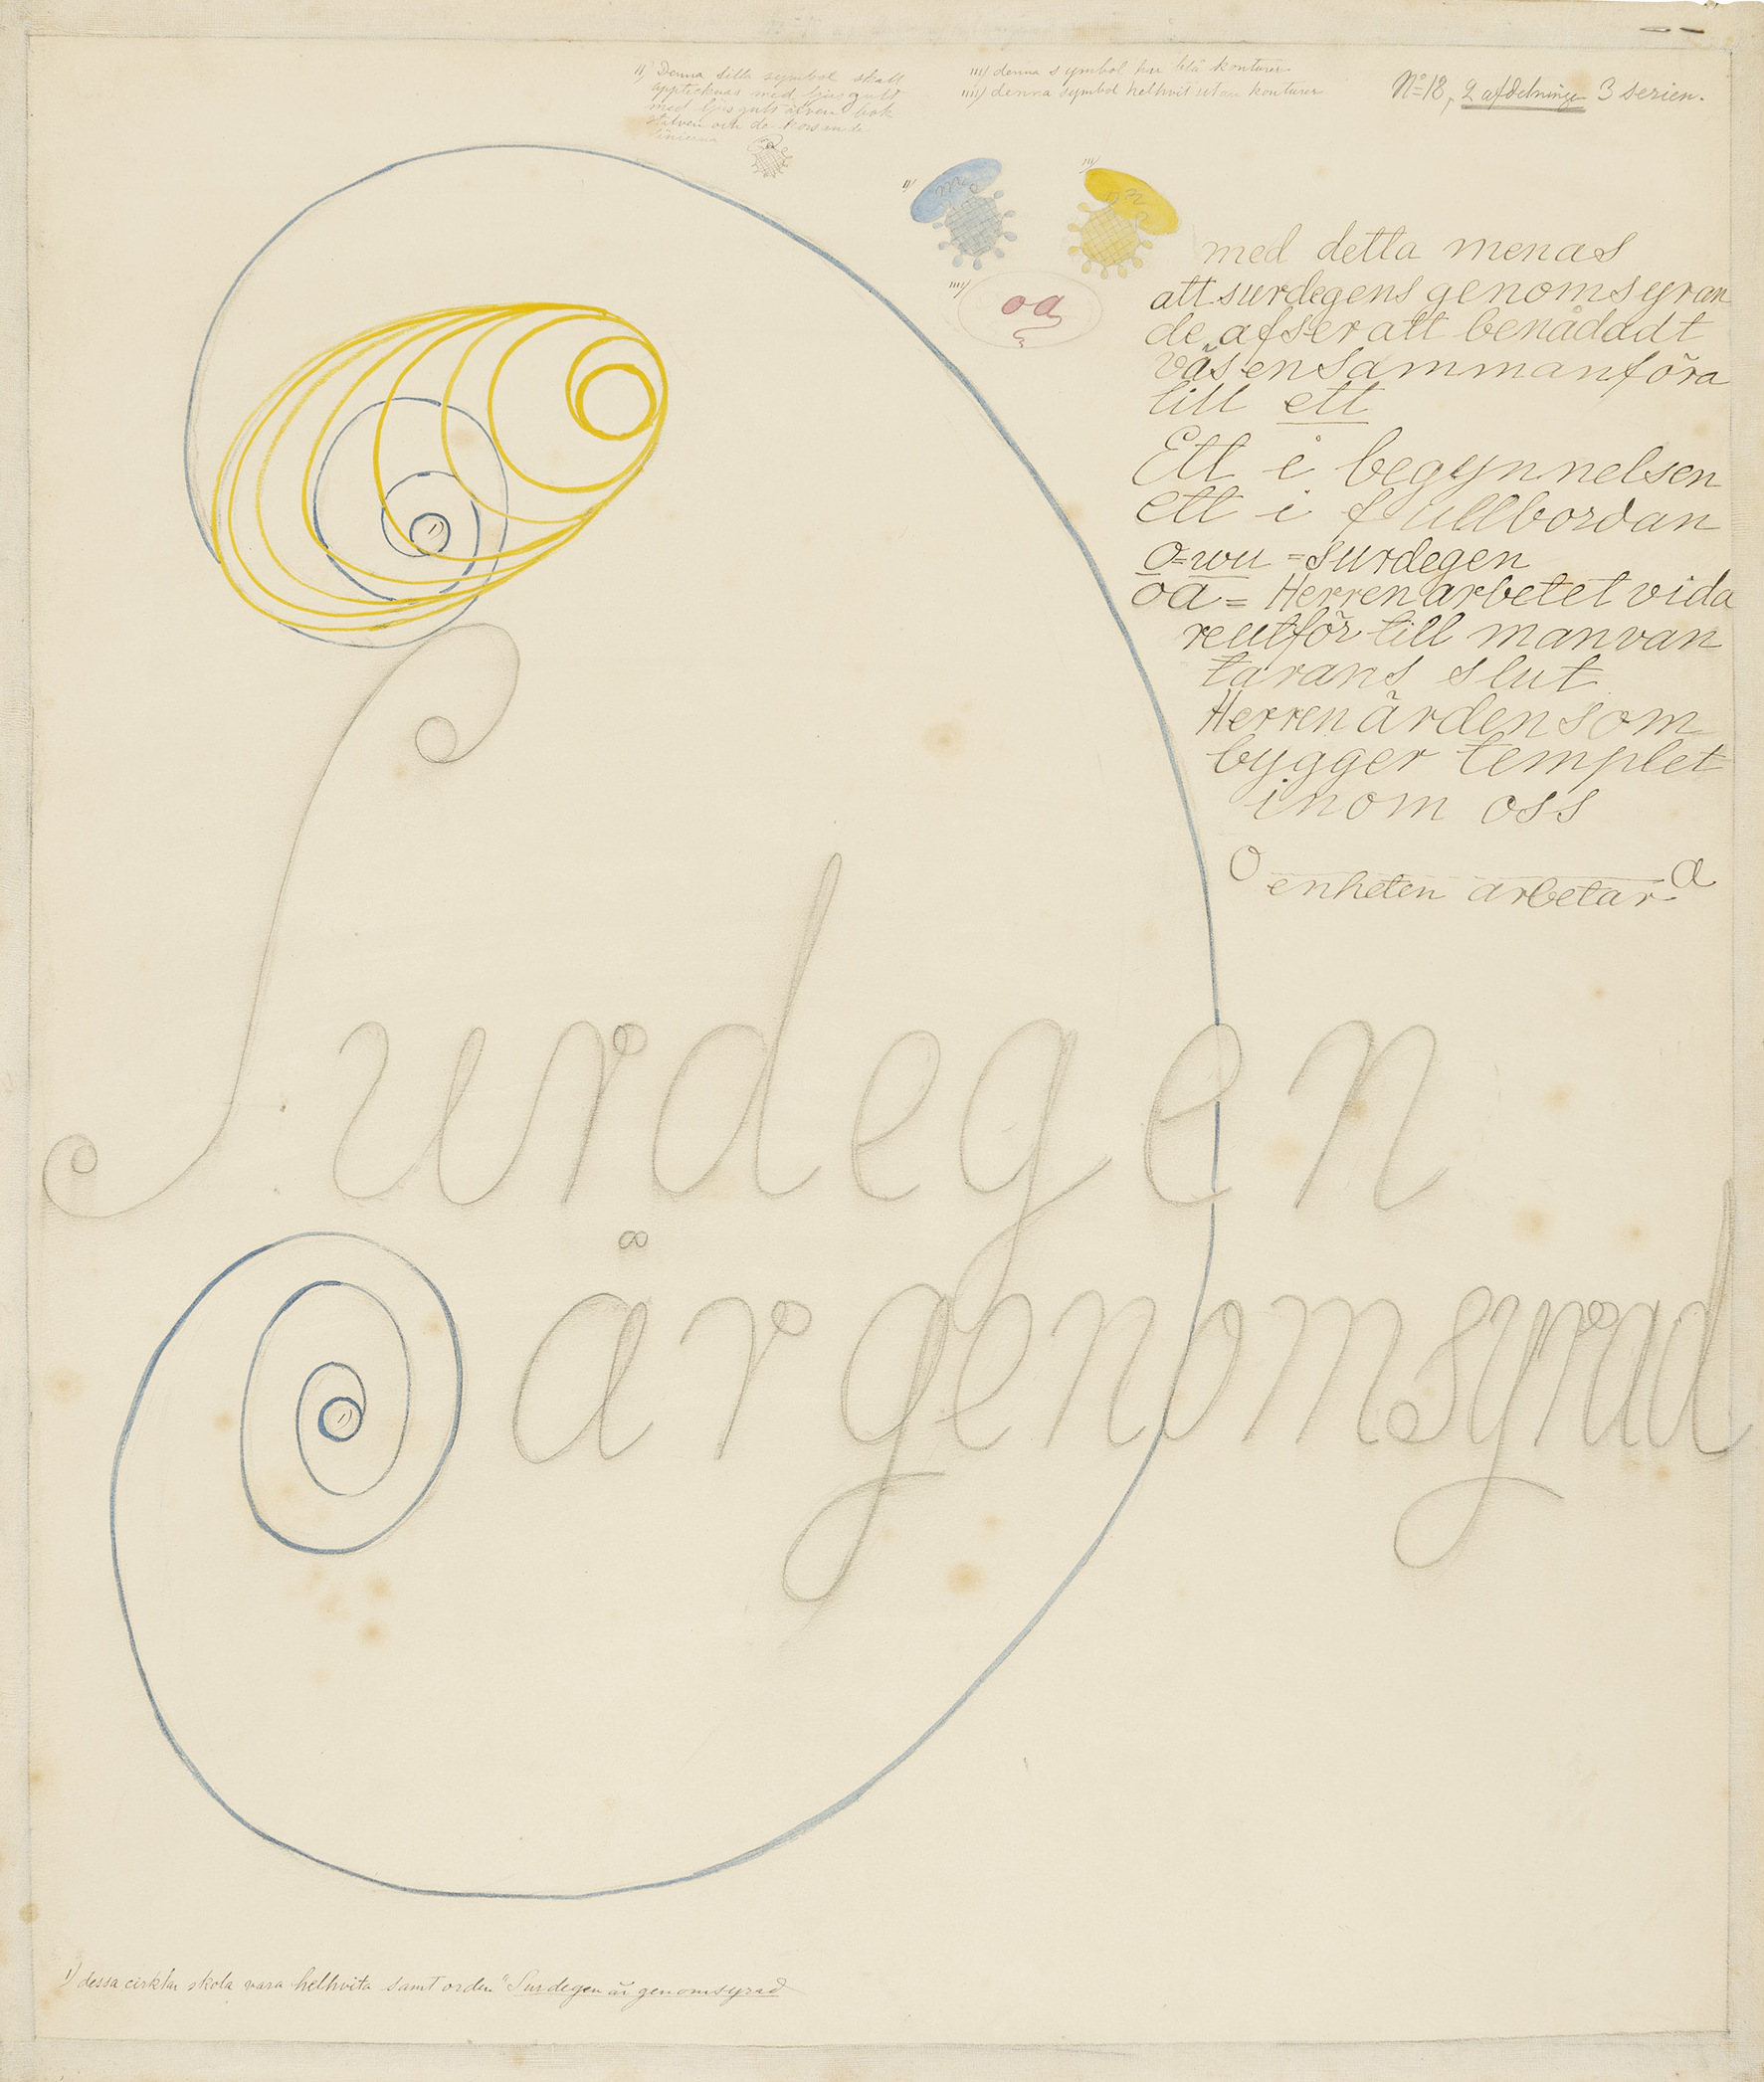 II) Denna lilla symbol skall
upptecknas med ljus gult
med ljus gult äfven bok
stäfven och de korsande
linierna
III) denna symbol har blå konturer
IIII) denna symbol helhvit utan konturer
No 18, 2 afdelningen 3 serien.
II)
III)
IIII)
oa
med detta menas
att surdegens genomsyran
de afser att benådadt
väsen sammanföra
till ett
Ett i begynnelsen
ett i fullbordan
o-wu = surdegen
oa = Herren arbetet vida
re utför till manvan
tarans slut
Herren är den som
bygger templet
inom oss
o enheten arbetar a
Surdegen
är genomsyrad
I) dessa cirklar skola vara helhvita samt orden "Surdegen är genomsyrad